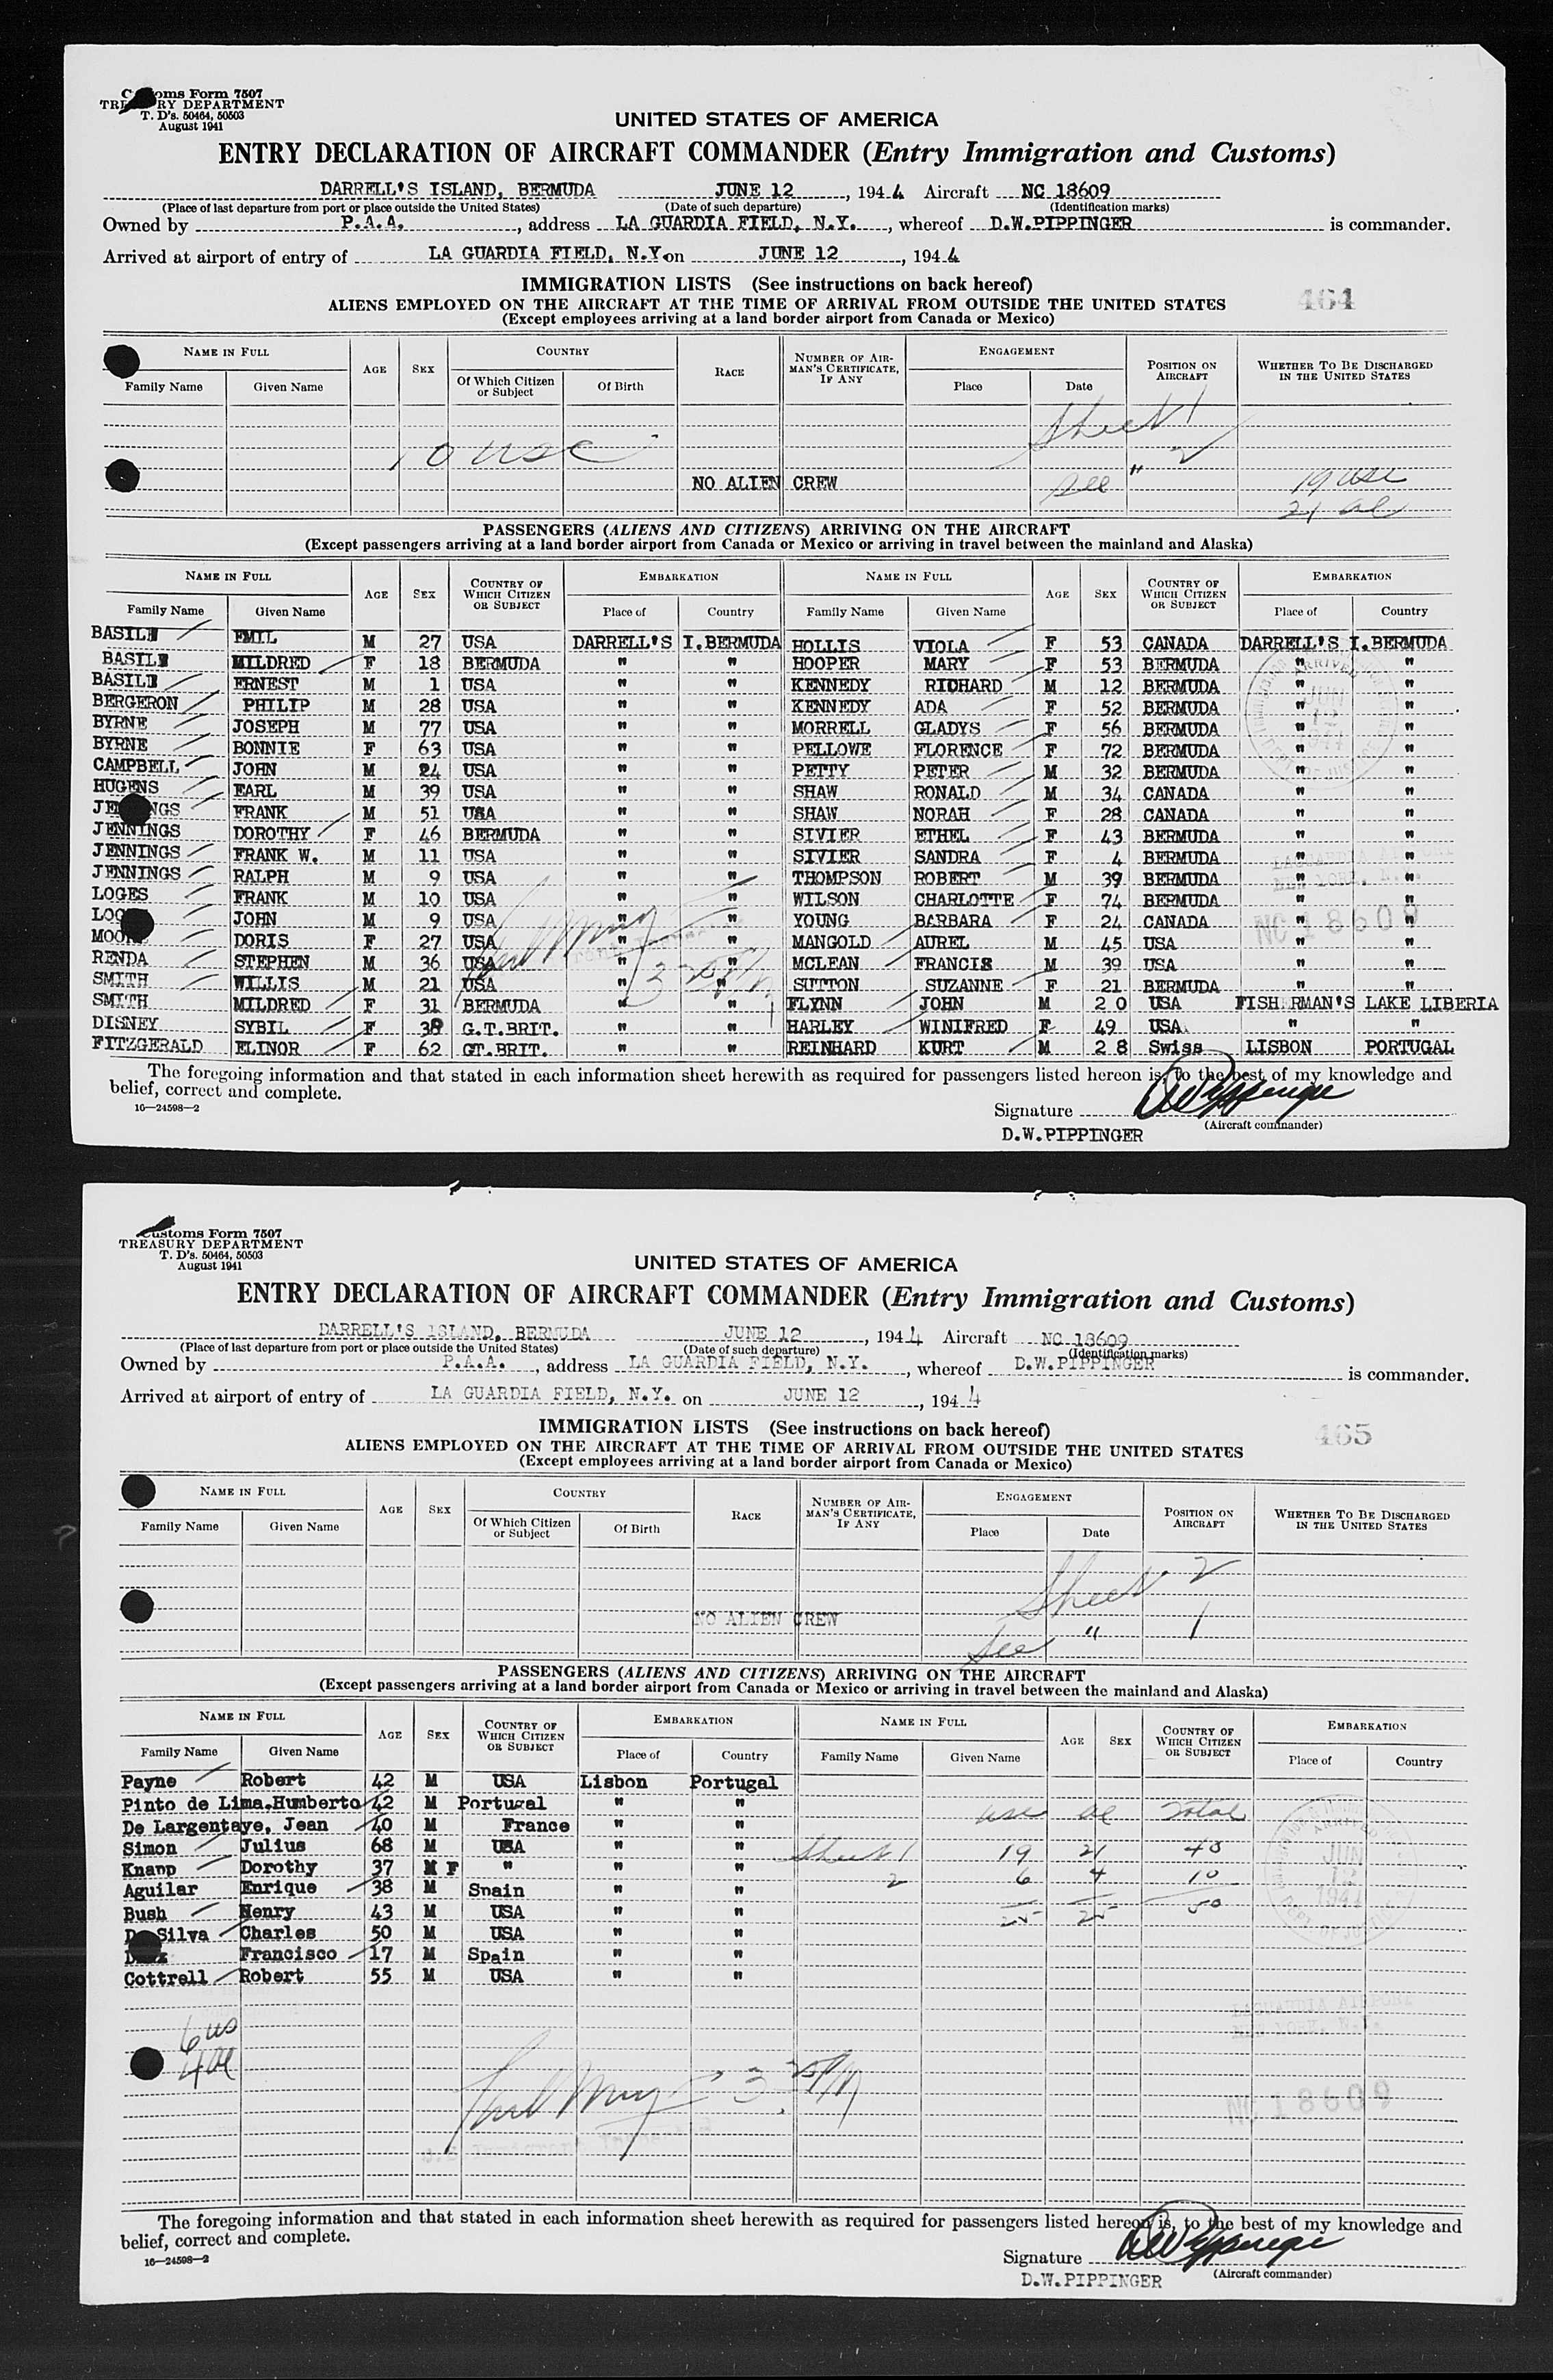 Customs Form 7507
TREASURY DEPARTMENT
T. D's. 50464, 50503
August 1941
UNITED STATES OF AMERICA
ENTRY DECLARATION OF AIRCRAFT COMMANDER (Entry Immigration and Customs)
DARRELL'S ISLAND, BERMUDA JUNE 12, 1944 Aircraft NC 18609
(Place of last departure from port or place outside the United States) (Date of such departure) (Identification marks)
Owned by P.A.A., address LA GUARDIA FIELD, N.Y., whereof D.W.PIPPINGER is commander.
Arrived at airport of entry of LA GUARDIA FIELD, N.Y on JUNE 12, 1944
IMMIGRATION LISTS (See instructions on back hereof)
464
ALIENS EMPLOYED ON THE AIRCRAFT AT THE TIME OF ARRIVAL FROM OUTSIDE THE UNITED STATES
(Except employees arriving at a land border airport from Canada or Mexico)
NAME IN FULL AGE SEX COUNTRY RACE NUMBER OF AIRMAN'S CERTIFICATE, IF ANY ENGAGEMENT POSITION ON AIRCRAFT WHETHER TO BE DISCHARGED IN THE UNITED STATES
Family Name Given Name Of Which Citizen or Subject Of Birth Place Date
Sheet 1
10 usc
NO ALIEN CREW see " 2 19 usc
21 al
PASSENGERS (ALIENS AND CITIZENS) ARRIVING ON THE AIRCRAFT
(Except passengers arriving at a land border airport from Canada or Mexico or arriving in travel between the mainland and Alaska)
NAME IN FULL AGE SEX COUNTRY OF WHICH CITIZEN OR SUBJECT EMBARKATION NAME IN FULL AGE SEX COUNTRY OF WHICH CITIZEN OR SUBJECT EMBARKATION
Family Name Given Name Place of Country Family Name Given Name Place of Country
BASILE EMIL M 27 USA DARRELL'S I. BERMUDA HOLLIS VIOLA F 53 CANADA DARRELL'S I. BERMUDA
BASILE MILDRED F 18 BERMUDA " " HOOPER MARY F 53 BERMUDA " "
BASILE ERNEST M 1 USA " " KENNEDY RICHARD M 12 BERMUDA " "
BERGERON PHILIP M 28 USA " " KENNEDY ADA F 52 BERMUDA " "
BYRNE JOSEPH M 77 USA " " MORRELL GLADYS F 56 BERMUDA " "
BYRNE BONNIE F 63 USA " " PELLOWE FLORENCE F 72 BERMUDA " "
CAMPBELL JOHN M 24 USA " " PETTY PETER M 32 BERMUDA " "
HUGENS EARL M 39 USA " " SHAW RONALD M 34 CANADA " "
JENNINGS FRANK M 51 USA " " SHAW NORAH F 28 CANADA " "
JENNINGS DOROTHY F 46 BERMUDA " " SIVIER ETHEL F 43 BERMUDA " "
JENNINGS FRANK W. M 11 USA " " SIVIER SANDRA F 4 BERMUDA " "
JENNINGS RALPH M 9 USA " " THOMPSON ROBERT M 39 BERMUDA " "
LOGES FRANK M 10 USA " " WILSON CHARLOTTE F 74 BERMUDA " "
LOG JOHN M 9 USA " " YOUNG BARBARA F 24 CANADA " "
MOORE DORIS F 27 USA " " MANGOLD AUREL M 45 USA " "
RENDA STEPHEN M 36 USA " " MCLEAN FRANCIS M 39 USA " "
SMITH WILLIS M 21 USA " " SUTTON SUZANNE F 21 BERMUDA " "
SMITH MILDRED F 31 BERMUDA " " FLYNN JOHN M 20 USA FISHERMAN'S LAKE LIBERIA
DISNEY SYBIL F 38 G.T.BRIT. " " HARLEY WINIFRED F 49 USA " "
FITZGERALD ELINOR F 62 GT.BRIT. " " REINHARD KURT M 28 Swiss LISBON PORTUGAL
ARRIVED JUN 12 1944
LAGUARDIA AIRPORT
NEW YORK, N.Y.
NC 18609
The foregoing information and that stated in each information sheet herewith as required for passengers listed hereon is, to the best of my knowledge and
belief, correct and complete.
16—24598—2
Signature DW Pippinger
(Aircraft commander)
D.W.PIPPINGER
Customs Form 7507
TREASURY DEPARTMENT
T. D's. 50464, 50503
August 1941
UNITED STATES OF AMERICA
ENTRY DECLARATION OF AIRCRAFT COMMANDER (Entry Immigration and Customs)
DARRELL'S ISLAND, BERMUDA JUNE 12, 1944 Aircraft NC 18609
(Place of last departure from port or place outside the United States) (Date of such departure) (Identification marks)
Owned by P.A.A., address LA GUARDIA FIELD, N.Y., whereof D.W.PIPPINGER is commander.
Arrived at airport of entry of LA GUARDIA FIELD, N.Y. on JUNE 12, 1944
IMMIGRATION LISTS (See instructions on back hereof)
465
ALIENS EMPLOYED ON THE AIRCRAFT AT THE TIME OF ARRIVAL FROM OUTSIDE THE UNITED STATES
(Except employees arriving at a land border airport from Canada or Mexico)
NAME IN FULL AGE SEX COUNTRY RACE NUMBER OF AIRMAN'S CERTIFICATE, IF ANY ENGAGEMENT POSITION ON AIRCRAFT WHETHER TO BE DISCHARGED IN THE UNITED STATES
Family Name Given Name Of Which Citizen or Subject Of Birth Place Date
Sheet 2
NO ALIEN CREW
See " 1
PASSENGERS (ALIENS AND CITIZENS) ARRIVING ON THE AIRCRAFT
(Except passengers arriving at a land border airport from Canada or Mexico or arriving in travel between the mainland and Alaska)
NAME IN FULL AGE SEX COUNTRY OF WHICH CITIZEN OR SUBJECT EMBARKATION NAME IN FULL AGE SEX COUNTRY OF WHICH CITIZEN OR SUBJECT EMBARKATION
Family Name Given Name Place of Country Family Name Given Name Place of Country
Payne Robert 42 M USA Lisbon Portugal
Pinto de Lima, Humberto 42 M Portugal " " usc al Total
De Largentaye, Jean 40 M France " "
Simon Julius 68 M USA " " Sheet 1 19 21 40
Knapp Dorothy 37 M F " " " 2 6 4 10
Aguilar Enrique 38 M Spain " "
Bush Henry 43 M USA " " 25 25 50
De Silva Charles 50 M USA " "
Francisco 17 M Spain " "
Cottrell Robert 55 M USA " "
ARRIVED JUN 12 1944
LAGUARDIA AIRPORT
NEW YORK, N.Y.
6 us
4 al
NC 18609
The foregoing information and that stated in each information sheet herewith as required for passengers listed hereon is, to the best of my knowledge and
belief, correct and complete.
16—24598—2
Signature DW Pippinger
(Aircraft commander)
D.W.PIPPINGER